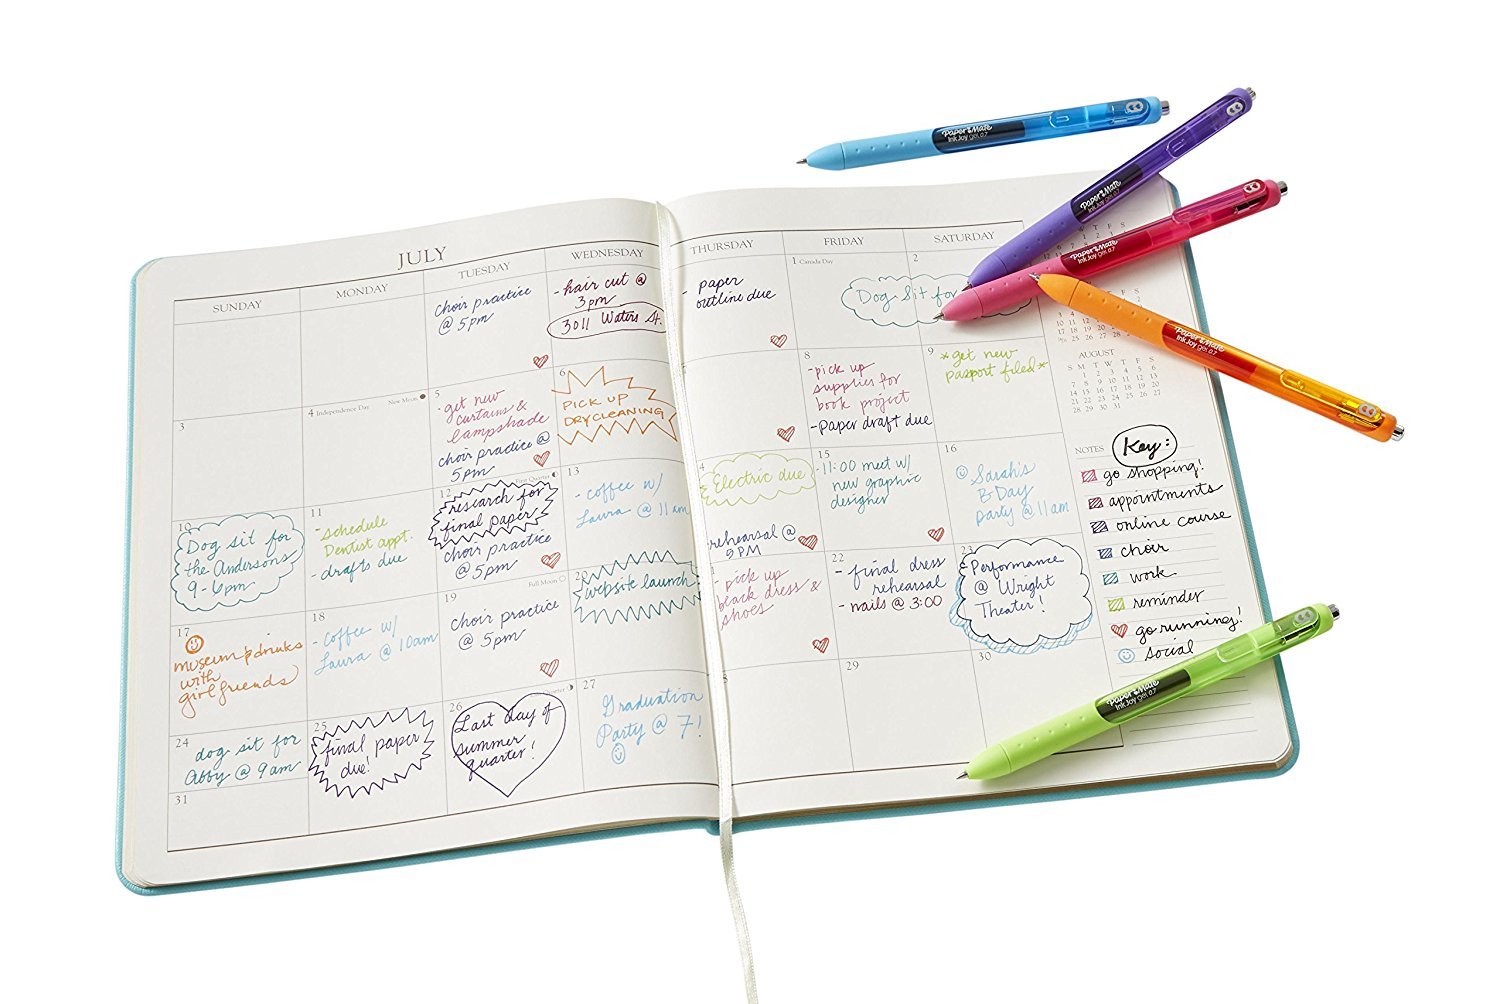 JULY
SUNDAY
MONDAY
TUESDAY
WEDNESDAY
THURSDAY
FRIDAY
SATURDAY
choir practice
@ 5pm
- hair cut @
3pm
3011 Waters St.
- paper
outline due
1 Canada Day
2
Dog Sit for
3
4 Independence Day
New Moon
5
- get new
curtains &
lampshade
choir practice @
5pm
6
PICK UP
DRYCLEANING
8
- pick up
supplies for
book project
- paper draft due
9
*get new
passport filed*
10
Dog sit for
the Andersons
9-6pm
11
- schedule
Dentist appt.
- drafts due
12
First Quarter
research for
final paper
choir practice
@ 5pm
13
- coffee w/
Laura @ 11am
4
Electric due
rehearsal @
5PM
15
- 11:00 meet w/
new graphic
designer
16
Sarah's
B-Day
party @ 11am
17
museum & drinks
with
girlfriends
18
- coffee w/
Laura @ 10am
19
Full Moon
choir practice
@ 5pm
20
website launch
- pick up
black dress &
shoes
22
- final dress
rehearsal
- nails @ 3:00
23
Performance
@ Wright
Theater!
24
dog sit for
Abby @ 9am
25
final paper
due!
26
Last day of
summer
quarter!
27
Graduation
Party @ 7!
29
30
31
AUGUST
S M T W T F S
1 2 3 4 5 6
7 8 9 10 11 12 13
14 15 16 17 18 19 20
21 22 23 24 25 26 27
28 29 30 31
NOTES
Key:
go shopping!
appointments
online course
choir
work
reminder
go running!
social
Paper Mate
InkJoy gel 0.7
Paper Mate
InkJoy gel 0.7
Paper Mate
InkJoy gel 0.7
Paper Mate
InkJoy gel 0.7
Paper Mate
InkJoy gel 0.7